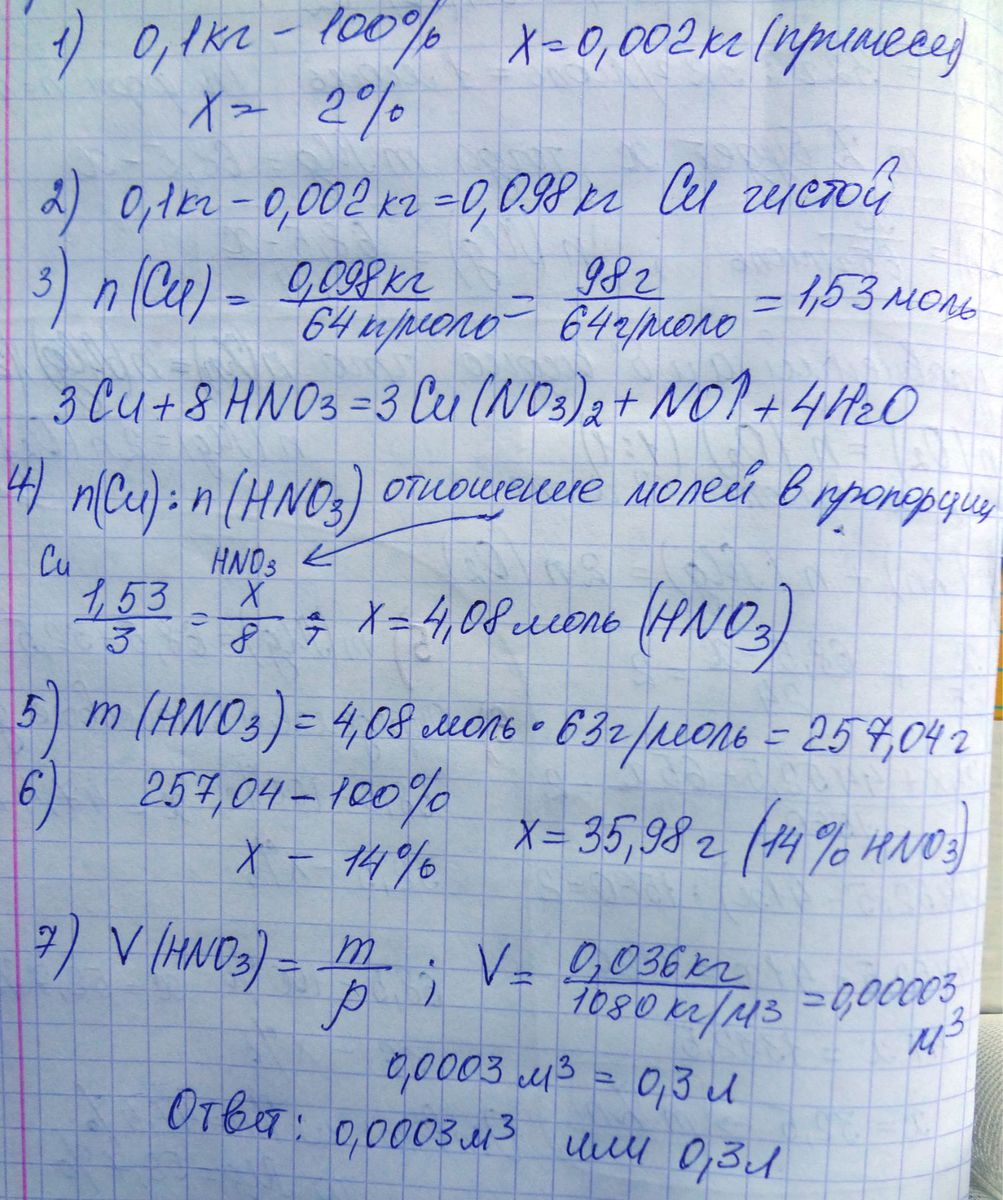 1) 0,1кг - 100% X = 0,002 кг (примеси)
X = 2%
2) 0,1кг - 0,002 кг = 0,098 кг Cu чистой
3) n(Cu) = 0,098кг / 64 кг/моль = 98г / 64г/моль = 1,53 моль
3Cu + 8HNO3 = 3Cu(NO3)2 + NO↑ + 4H2O
4) n(Cu) : n(HNO3) отношение молей в пропорции
Cu HNO3
1,53 / 3 = X / 8 ; X = 4,08 моль (HNO3)
5) m(HNO3) = 4,08 моль · 63г/моль = 257,04г
6) 257,04 - 100%
X - 14% X = 35,98 г (14% HNO3)
7) V(HNO3) = m / ρ ; V = 0,036 кг / 1080 кг/м3 = 0,00003 м3
0,0003 м3 = 0,3 л
Ответ: 0,0003м3 или 0,3л